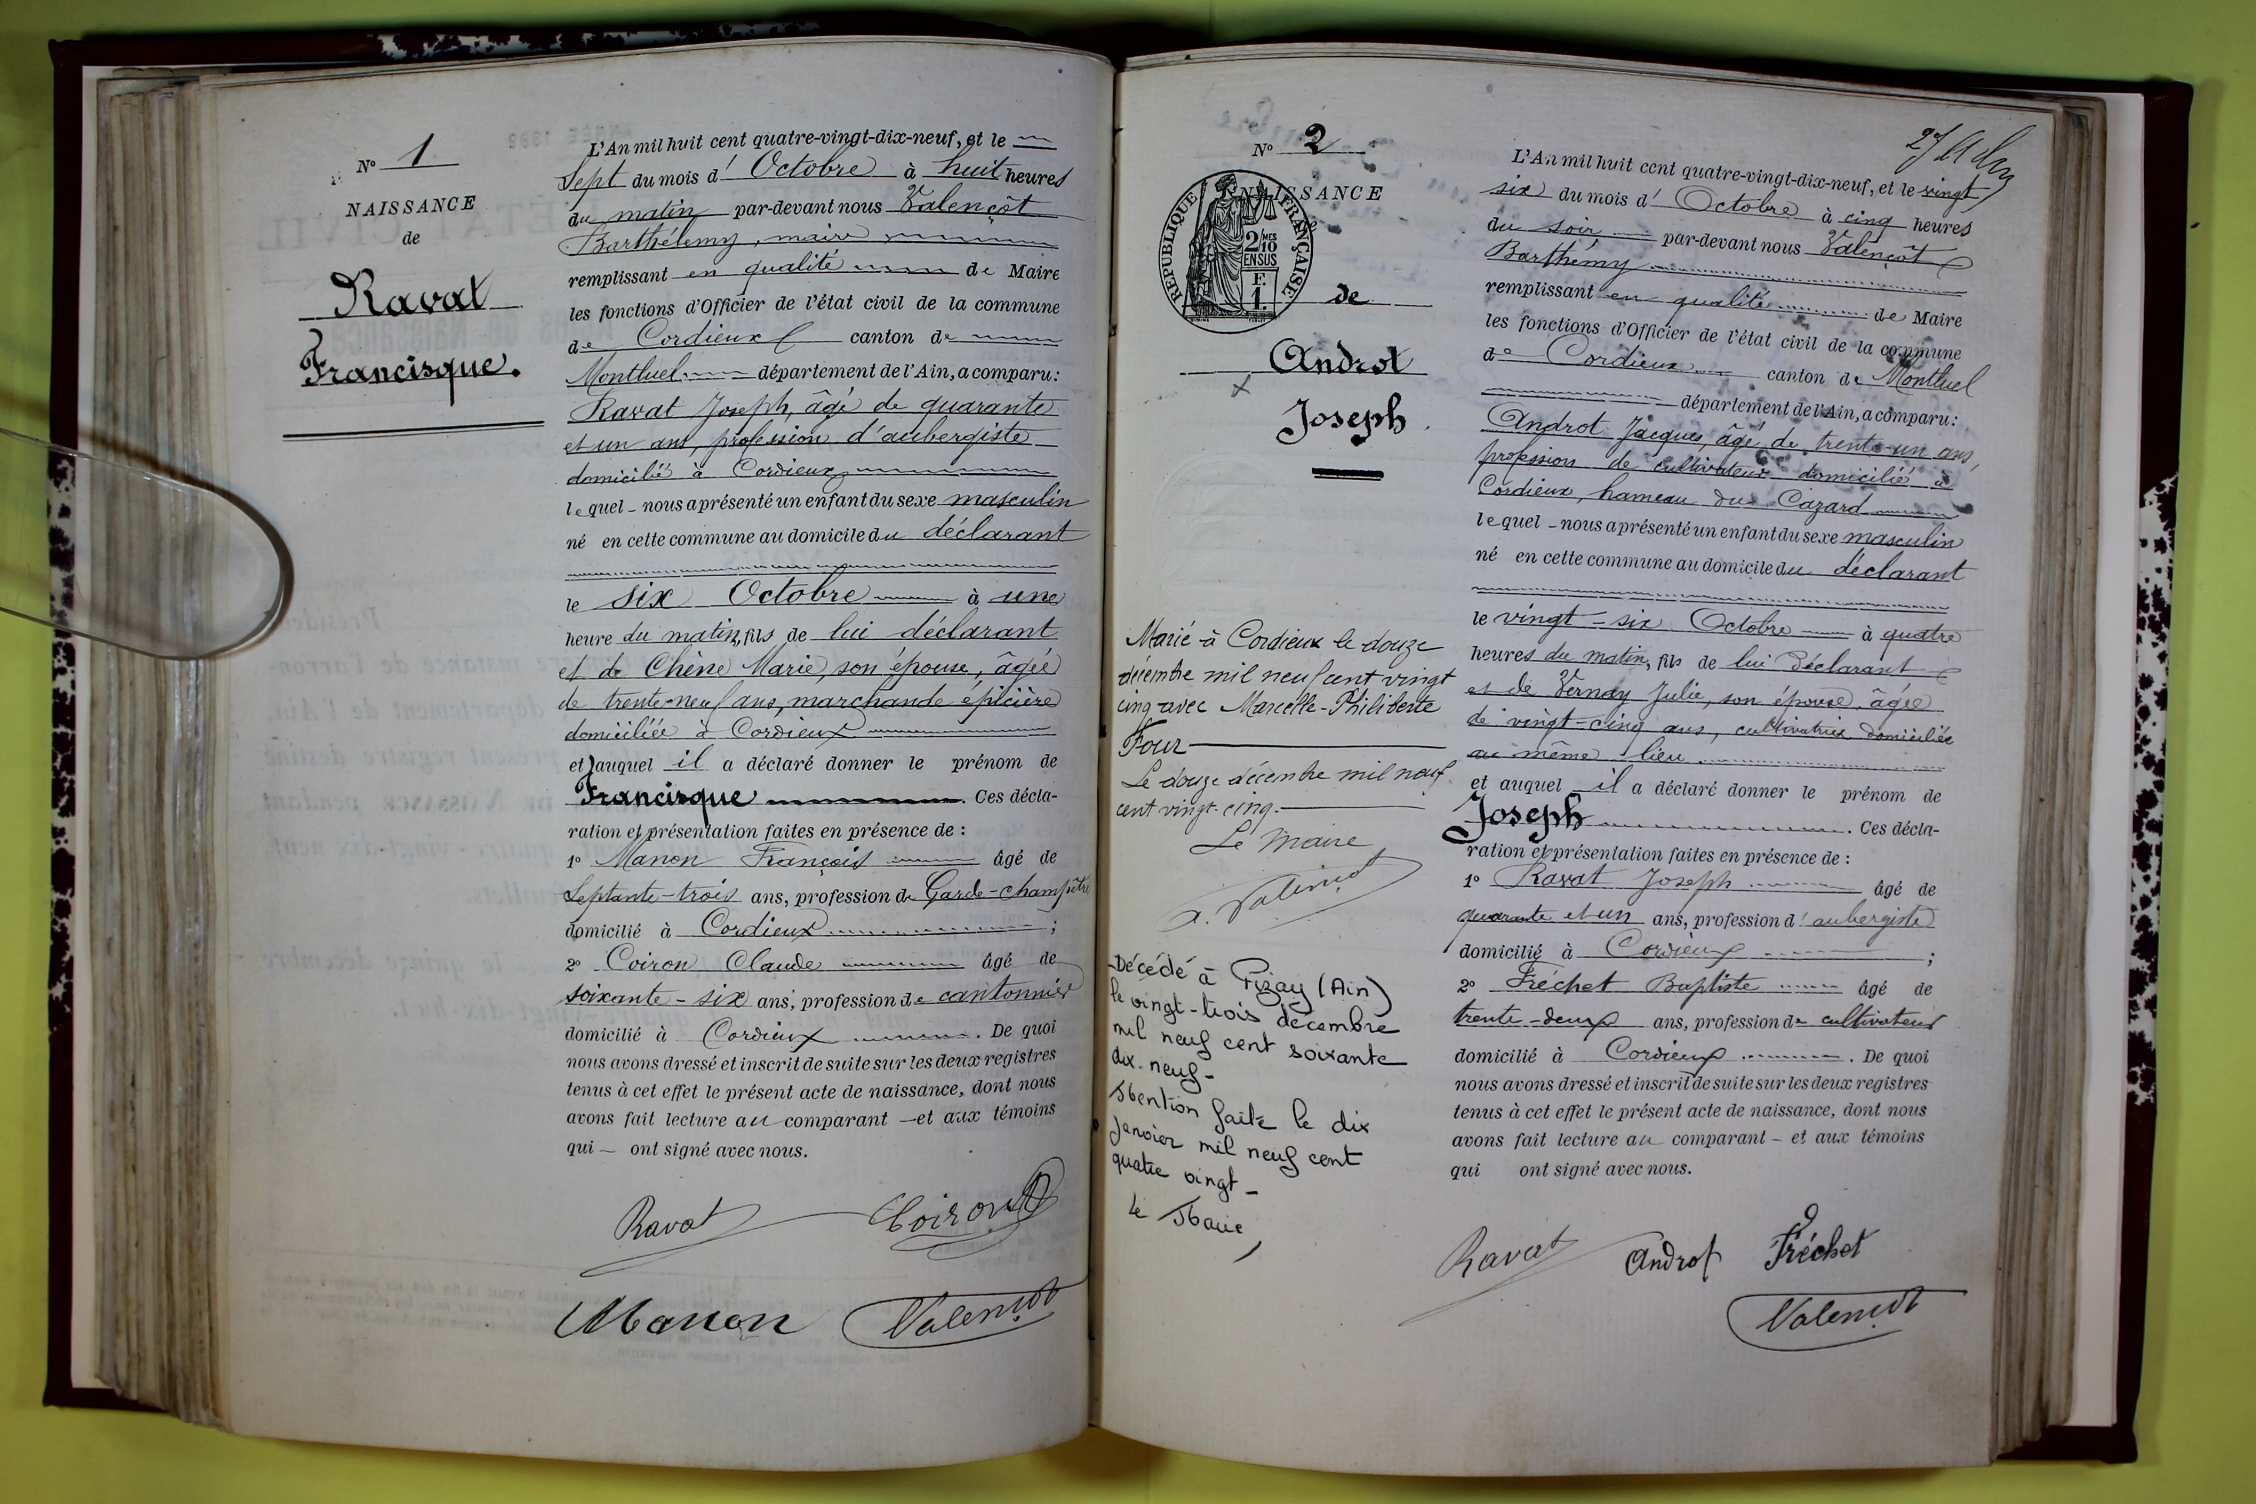 N° 1
NAISSANCE
de
Ravat
Francisque.
L'An mil huit cent quatre-vingt-dix-neuf, et le
Sept du mois d' Octobre à huit heures
du matin par-devant nous Valençôt
Barthélemy, maire
remplissant en qualité de Maire
les fonctions d'Officier de l'état civil de la commune
de Cordieux canton de
Montluel département de l'Ain, a comparu:
Ravat Joseph, âgé de quarante
et un ans, profession d'aubergiste
domicilié à Cordieux
lequel - nous a présenté un enfant du sexe masculin
né en cette commune au domicile du déclarant
le six Octobre à une
heure du matin, fils de lui déclarant
et de Chêne Marie, son épouse, âgée
de trente-neuf ans, marchande épicière
domiciliée à Cordieux
et auquel il a déclaré donner le prénom de
Francisque. Ces décla-
ration et présentation faites en présence de :
1° Manon François âgé de
Septante-trois ans, profession de Garde-champêtre
domicilié à Cordieux ;
2° Coiron Claude âgé de
soixante-six ans, profession de cantonnier
domicilié à Cordieux. De quoi
nous avons dressé et inscrit de suite sur les deux registres
tenus à cet effet le présent acte de naissance, dont nous
avons fait lecture au comparant - et aux témoins
qui - ont signé avec nous.
Ravat Coiron
Manon Valençot
N° 2
NAISSANCE
RÉPUBLIQUE FRANÇAISE
2 MES
10
EN SUS
F.
1.
de
Androt
Joseph
Marié à Cordieux le douze
décembre mil neuf cent vingt
cinq avec Marcelle-Philiberte
Four
Le douze décembre mil neuf
cent vingt-cinq.
Le Maire
Décédé à Pizay (Ain)
le vingt-trois décembre
mil neuf cent soixante
dix-neuf-
Mention faite le dix
Janvier mil neuf cent
quatre vingt-
Le Maire,
L'An mil huit cent quatre-vingt-dix-neuf, et le vingt
six du mois d' Octobre à cinq heures
du soir par-devant nous Valençôt
Barthémy
remplissant en qualité de Maire
les fonctions d'Officier de l'état civil de la commune
de Cordieux canton de Montluel
département de l'Ain, a comparu:
Androt Jacques, âgé de trente-un ans,
profession de cultivateur domicilié à
Cordieux, hameau du Cazard
lequel - nous a présenté un enfant du sexe masculin
né en cette commune au domicile du déclarant
le vingt-six Octobre à quatre
heures du matin, fils de lui déclarant
et de Vernay Julie, son épouse, âgée
de vingt-cinq ans, cultivatrice domiciliée
au même lieu
et auquel il a déclaré donner le prénom de
Joseph. Ces décla-
ration et présentation faites en présence de :
1° Ravat Joseph âgé de
quarante et un ans, profession d'aubergiste
domicilié à Cordieux ;
2° Fréchet Baptiste âgé de
trente-deux ans, profession de cultivateur
domicilié à Cordieux. De quoi
nous avons dressé et inscrit de suite sur les deux registres
tenus à cet effet le présent acte de naissance, dont nous
avons fait lecture au comparant - et aux témoins
qui ont signé avec nous.
Ravat Androt Fréchet
Valençot